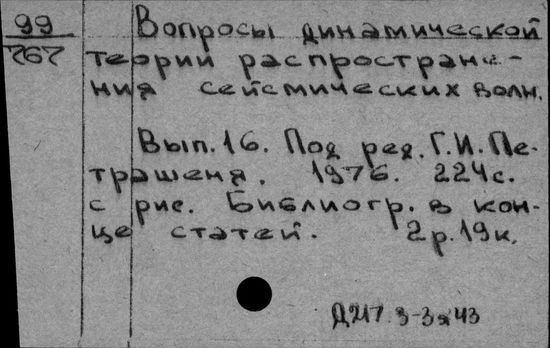 99
767
Вопросы динамической
теории распростране-
ния сейсмических волн.
Вып. 16. Под ред. Г.И. Пе-
трашеня. 1976. 224с.
с рис. Библиогр. в кон-
це статей. 2р.19к.